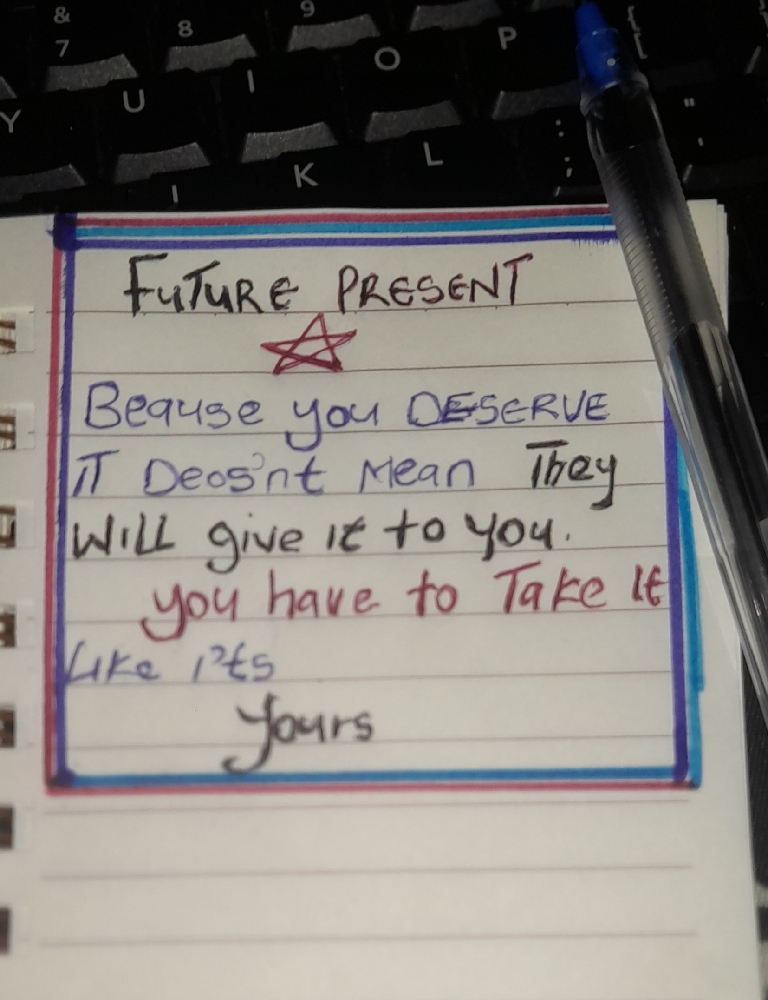 &
7
8
9
Y
U
I
O
P
{
[
K
L
:
;
"
'
FUTURE PRESENT
Beause you DESERVE
iT Deos'nt Mean They
WILL give it to you.
you have to Take It
Like i'ts
Yours